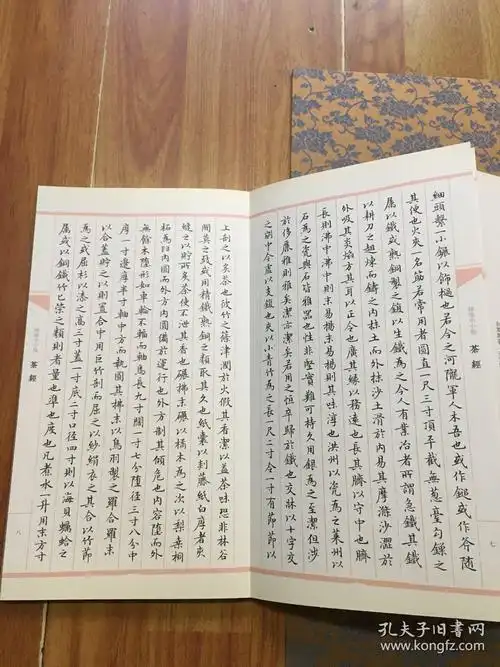 細頭繫一小𨰿以飾檛也若今之河隴軍人木吾也或作鎚或作斧隨
其便也火夾一名筯若常用者圓直一尺三寸頂平截無蔥臺勾鏁之
屬以鐵或熟銅製之鍑以生鐵為之今人有業冶者所謂急鐵其鐵
以耕刀之趄煉而鑄之内抹土而外抹沙土滑於内易其摩滌沙澀於
外吸其炎焰方其耳以正令也廣其緣以務遠也長其臍以守中也臍
長則沸中沸中則末易揚末易揚則其味淳也洪州以瓷為之萊州以
石為之瓷與石皆雅器也性非堅實難可持久用銀為之至潔但涉
於侈麗雅則雅矣潔亦潔矣若用之恒卒歸於鐵也交牀以十字交
之剜中令虛以支鍑也夾以小青竹為之長一尺二寸令一寸有節節以
七
茶經
上剖之以炙茶也彼竹之篠津潤於火假其香潔以益茶味恐非林谷
間莫之致或用精鐵熟銅之類取其久也紙囊以剡藤紙白厚者夾
縫之以貯所炙茶使不泄其香也碾拂末碾以橘木為之次以梨桑桐
柘為臼内圓而外方内圓備於運行也外方制其傾危也内容墮而外
無餘木墮形如車輪不輻而軸焉長九寸闊一寸七分墮徑三寸八分中
厚一寸邊厚半寸軸中方而執圓其拂末以鳥羽製之羅合羅末
以合蓋貯之以則置合中用巨竹剖而屈之以紗絹衣之其合以竹節
為之或屈杉以漆之高三寸蓋一寸底二寸口徑四寸則以海貝蠣蛤之
屬或以銅鐵竹匕策之類則者量也準也度也凡煮水一升用末方寸
茶經
八
孔夫子旧書网
www.kongfz.com